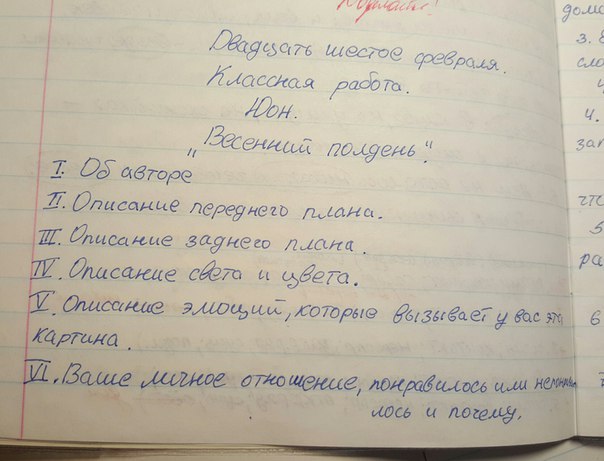 Двадцать шестое февраля.
Классная работа.
Юон.
„Весенний полдень".
I. Об авторе
II. Описание переднего плана.
III. Описание заднего плана.
IV. Описание света и цвета.
V. Описание эмоций, которые вызывает у вас эта
картина.
VI. Ваше личное отношение, понравилось или
лось и почему.
дома
3.
4.
5
6